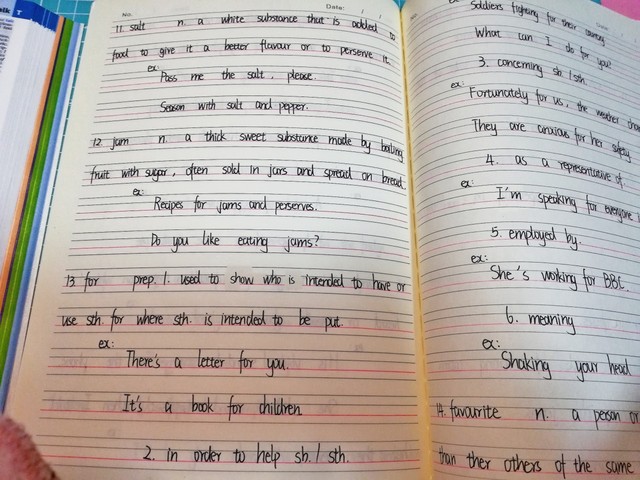 No.
Date: / /
11. salt n. a white substance that is added to
food to give it a better flavour or to perserve it.
ex:
Pass me the salt, please.
Season with salt and pepper.
12 jam n. a thick sweet substance made by boiling
fruit with sugar, often sold in jars and spread on bread.
ex:
Recipes for jams and perserves.
Do you like eating jams?
13 for prep. 1. used to show who is intended to have or
use sth. for where sth. is intended to be put.
ex:
There's a letter for you.
It's a book for children
2. in order to help sb. / sth.
Soldiers fighting for their country
What can I do for you?
3. concerning sb. / sth.
ex:
Fortunately for us, the weather
They are anxious for her safety.
4. as a representative of.
ex:
I'm speaking for everyone
5. employed by.
ex:
She's working for BBC.
6. meaning
ex:
Shaking your head
14. favourite n. a person or
than ther others of the same